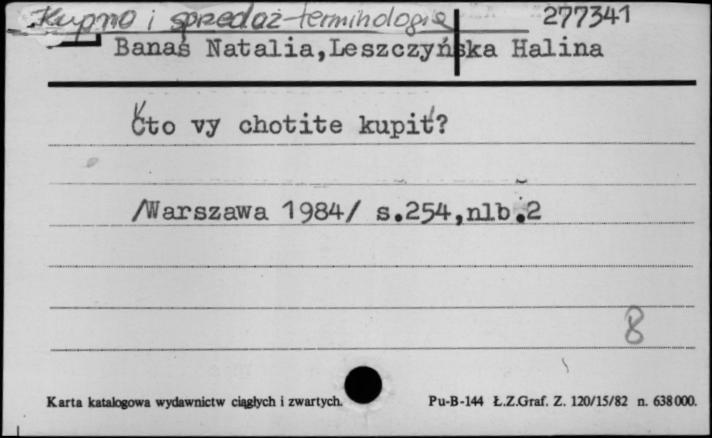 Kupno i sprzedaż-terminologia 277341
Banaś Natalia,Leszczyńska Halina
Čto vy chotite kupit'?
/Warszawa 1984/ s.254,nlb.2
8
Karta katalogowa wydawnictw ciągłych i zwartych. Pu-B-144 Ł.Z.Graf. Z. 120/15/82 n. 638000.